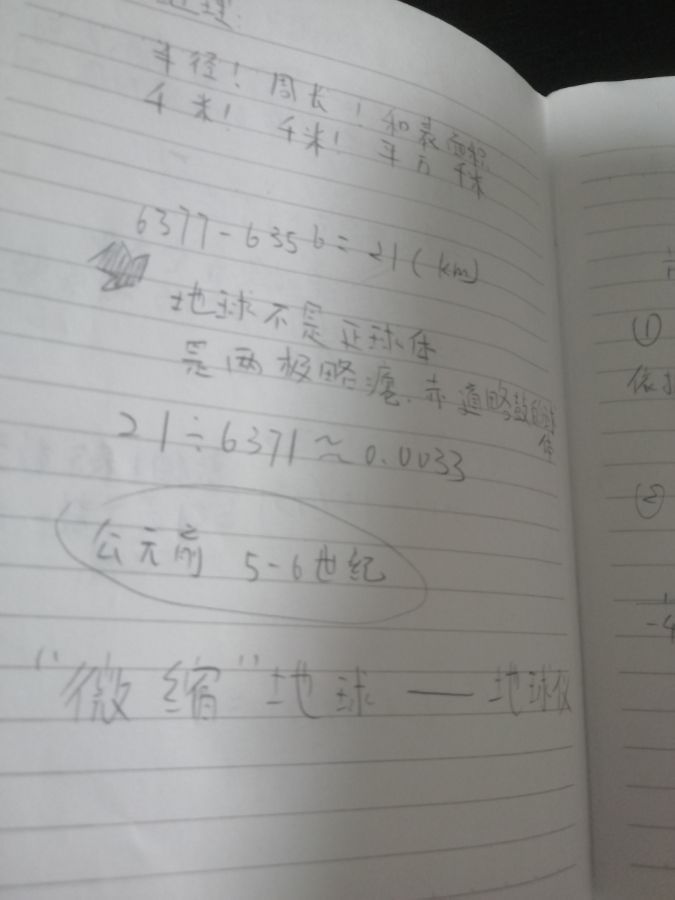 地理:
半径! 周长! 和表面积
千米! 千米! 平方千米
6377-6356=21(km)
地球不是正球体
是两极略扁.赤道略鼓的球体
21÷6371≈0.0033
公元前 5-6世纪
"微缩"地球——地球仪
①
②
-4